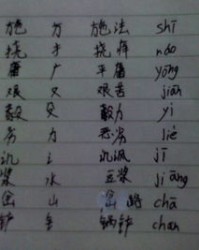 施 方 施法 shī
挠 扌 挠痒 náo
庸 广 平庸 yōng
艰 又 艰苦 jiān
毅 殳 毅力 yì
劣 力 恶劣 liè
讥 讠 讥讽 jī
浆 水 豆浆 jiāng
山 chā
铲 锅铲 chan